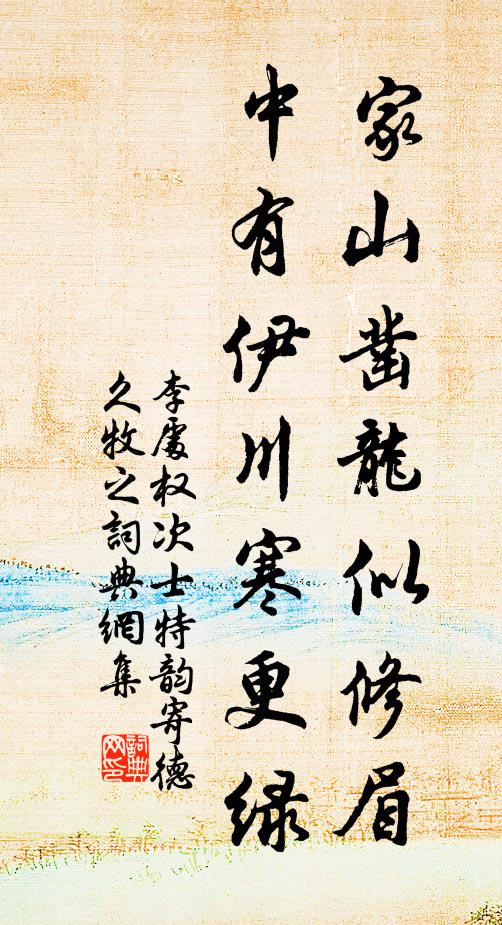 家山凿龍似修眉
中有伊川寒更绿
李處权次士特韵寄德
久牧之詞典網集
詞典
网印